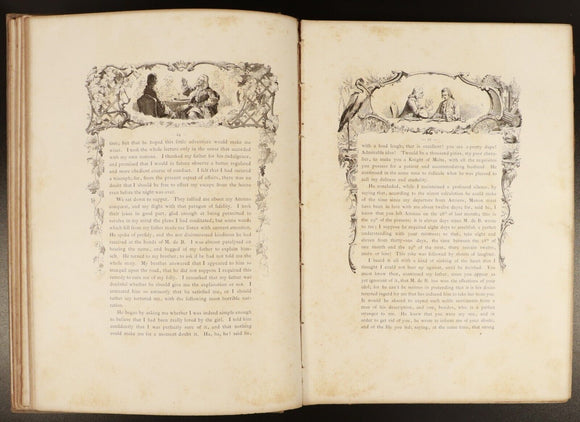 14
time, but that he hoped this little adventure would make me
wiser. I took the whole lecture only in the sense that accorded
with my own notions. I thanked my father for his indulgence,
and promised that I would in future observe a better regulated
and more obedient course of conduct. I felt that I had secured
a triumph; for, from the present aspect of affairs, there was no
doubt that I should be free to effect my escape from the house
even before the night was over.
We sat down to supper. They rallied me about my Amiens
conquest, and my flight with that paragon of fidelity. I took
their jokes in good part, glad enough at being permitted to
revolve in my mind the plans I had meditated; but some words
which fell from my father made me listen with earnest attention.
He spoke of perfidy, and the not disinterested kindness he had
received at the hands of M. de B. I was almost paralysed on
hearing the name, and begged of my father to explain him-
self. He turned to my brother, to ask if he had not told me the
whole story. My brother answered that I appeared to him so
tranquil upon the road, that he did not suppose I required this
remedy to cure me of my folly. I remarked that my father was
doubtful whether he should give me the explanation or not. I
entreated him so earnestly, that he satisfied me, or I should
rather say tortured me, with the following most horrible nar-
ration.
He began by asking me whether I was indeed simple enough
to believe that I had been really loved by the girl. I told him
confidently that I was perfectly sure of it, and that nothing
could make me for a moment doubt it. Ha, ha, ha! said he,
15
with a loud laugh; that is excellent! you are a pretty dupe!
Admirable idea! 'Twould be a thousand pities, my poor cheva-
lier, to make you a Knight of Malta, with all the requisites
you possess for a patient and accommodating husband. He
continued in the same tone to ridicule what he was pleased to
call my dullness and credulity.
He concluded, while I maintained a profound silence, by
saying that, according to the nicest calculation he could make
of the time since my departure from Amiens, Manon must
have been in love with me about twelve days; for, said he, I
know that you left Amiens on the 28th of last month; this
day is the 29th of the present; it is eleven days since M. de B. wrote
to me; I suppose he required eight days to establish a perfect
understanding with your mistress; so that, take eight and
eleven from thirty-one days, the time between the 28th of
one month and the 29th of the next, there remain twelve,
more or less! This joke was followed by shouts of laughter.
I heard it all with a kind of sinking of the heart that I
thought I could not bear up against, until he finished. You
must know then, continued my father, since you appear as
yet ignorant of it, that M. de B. has won the affections of your
idol; for he can't be serious in pretending that it is his disin-
terested regard for me that has induced him to take her from you.
It would be absurd to expect such noble sentiments from a
man of his description, and one, besides, who is a perfect
stranger to me. He knew that you were my son, and in
order to get rid of you, he wrote to inform me of your abode,
and of the life you led; saying, at the same time, that strong